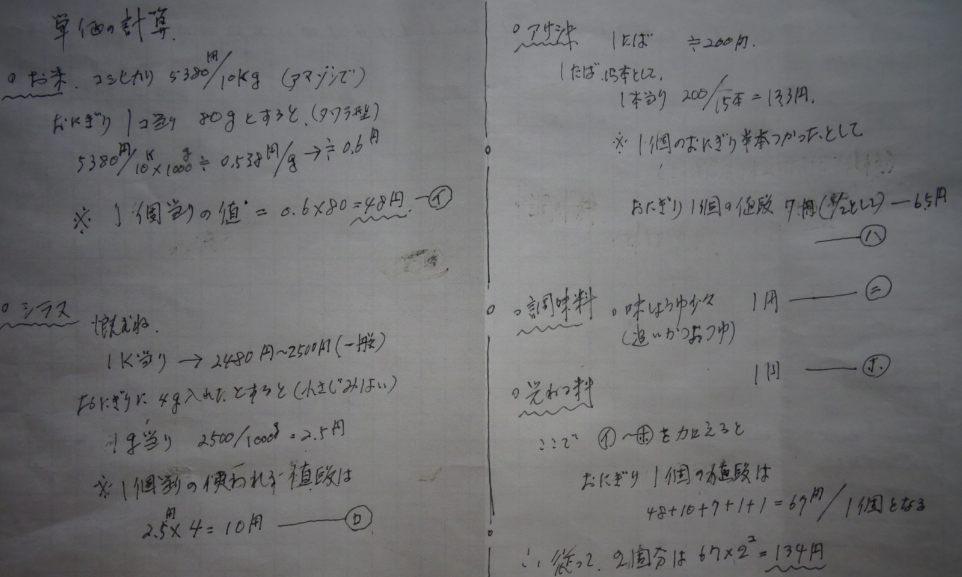 単価の計算
○お米. コシヒカリ 5380円/10Kg (アマゾンで)
おにぎり1コ当り 80gとすると、(タワラ型)
5380円/10K×1000g ≒ 0.538円/g → ≒0.6円
※ 1個当りの値 = 0.6×80=48円 ―㋑
○シラス
1K当り → 2480円~2500円(一般)
おにぎりに 4g入れたとすると(小さじ1ぱい)
1g当り 2500/1000g = 2.5円
※1個当りの使われる値段は
2.5円×4=10円 ―㋺
○アサツキ 1たば ≒200円.
1たば 15本として,
1本当り 200/15本=13.3円,
※1個のおにぎり半本つかったとして
おにぎり1個の値段 7円(1/2として)―6.5円
―㋩
○調味料 ○味しょうゆ少々 1円 ―㋥
(追いがつおつゆ)
1円 ―㋭
○光熱料
ここで ㋑~㋭を加えると
おにぎり 1個の値段は
48+10+7+1+1=67円/1個となる
∴従って、2個分は 67×2=134円